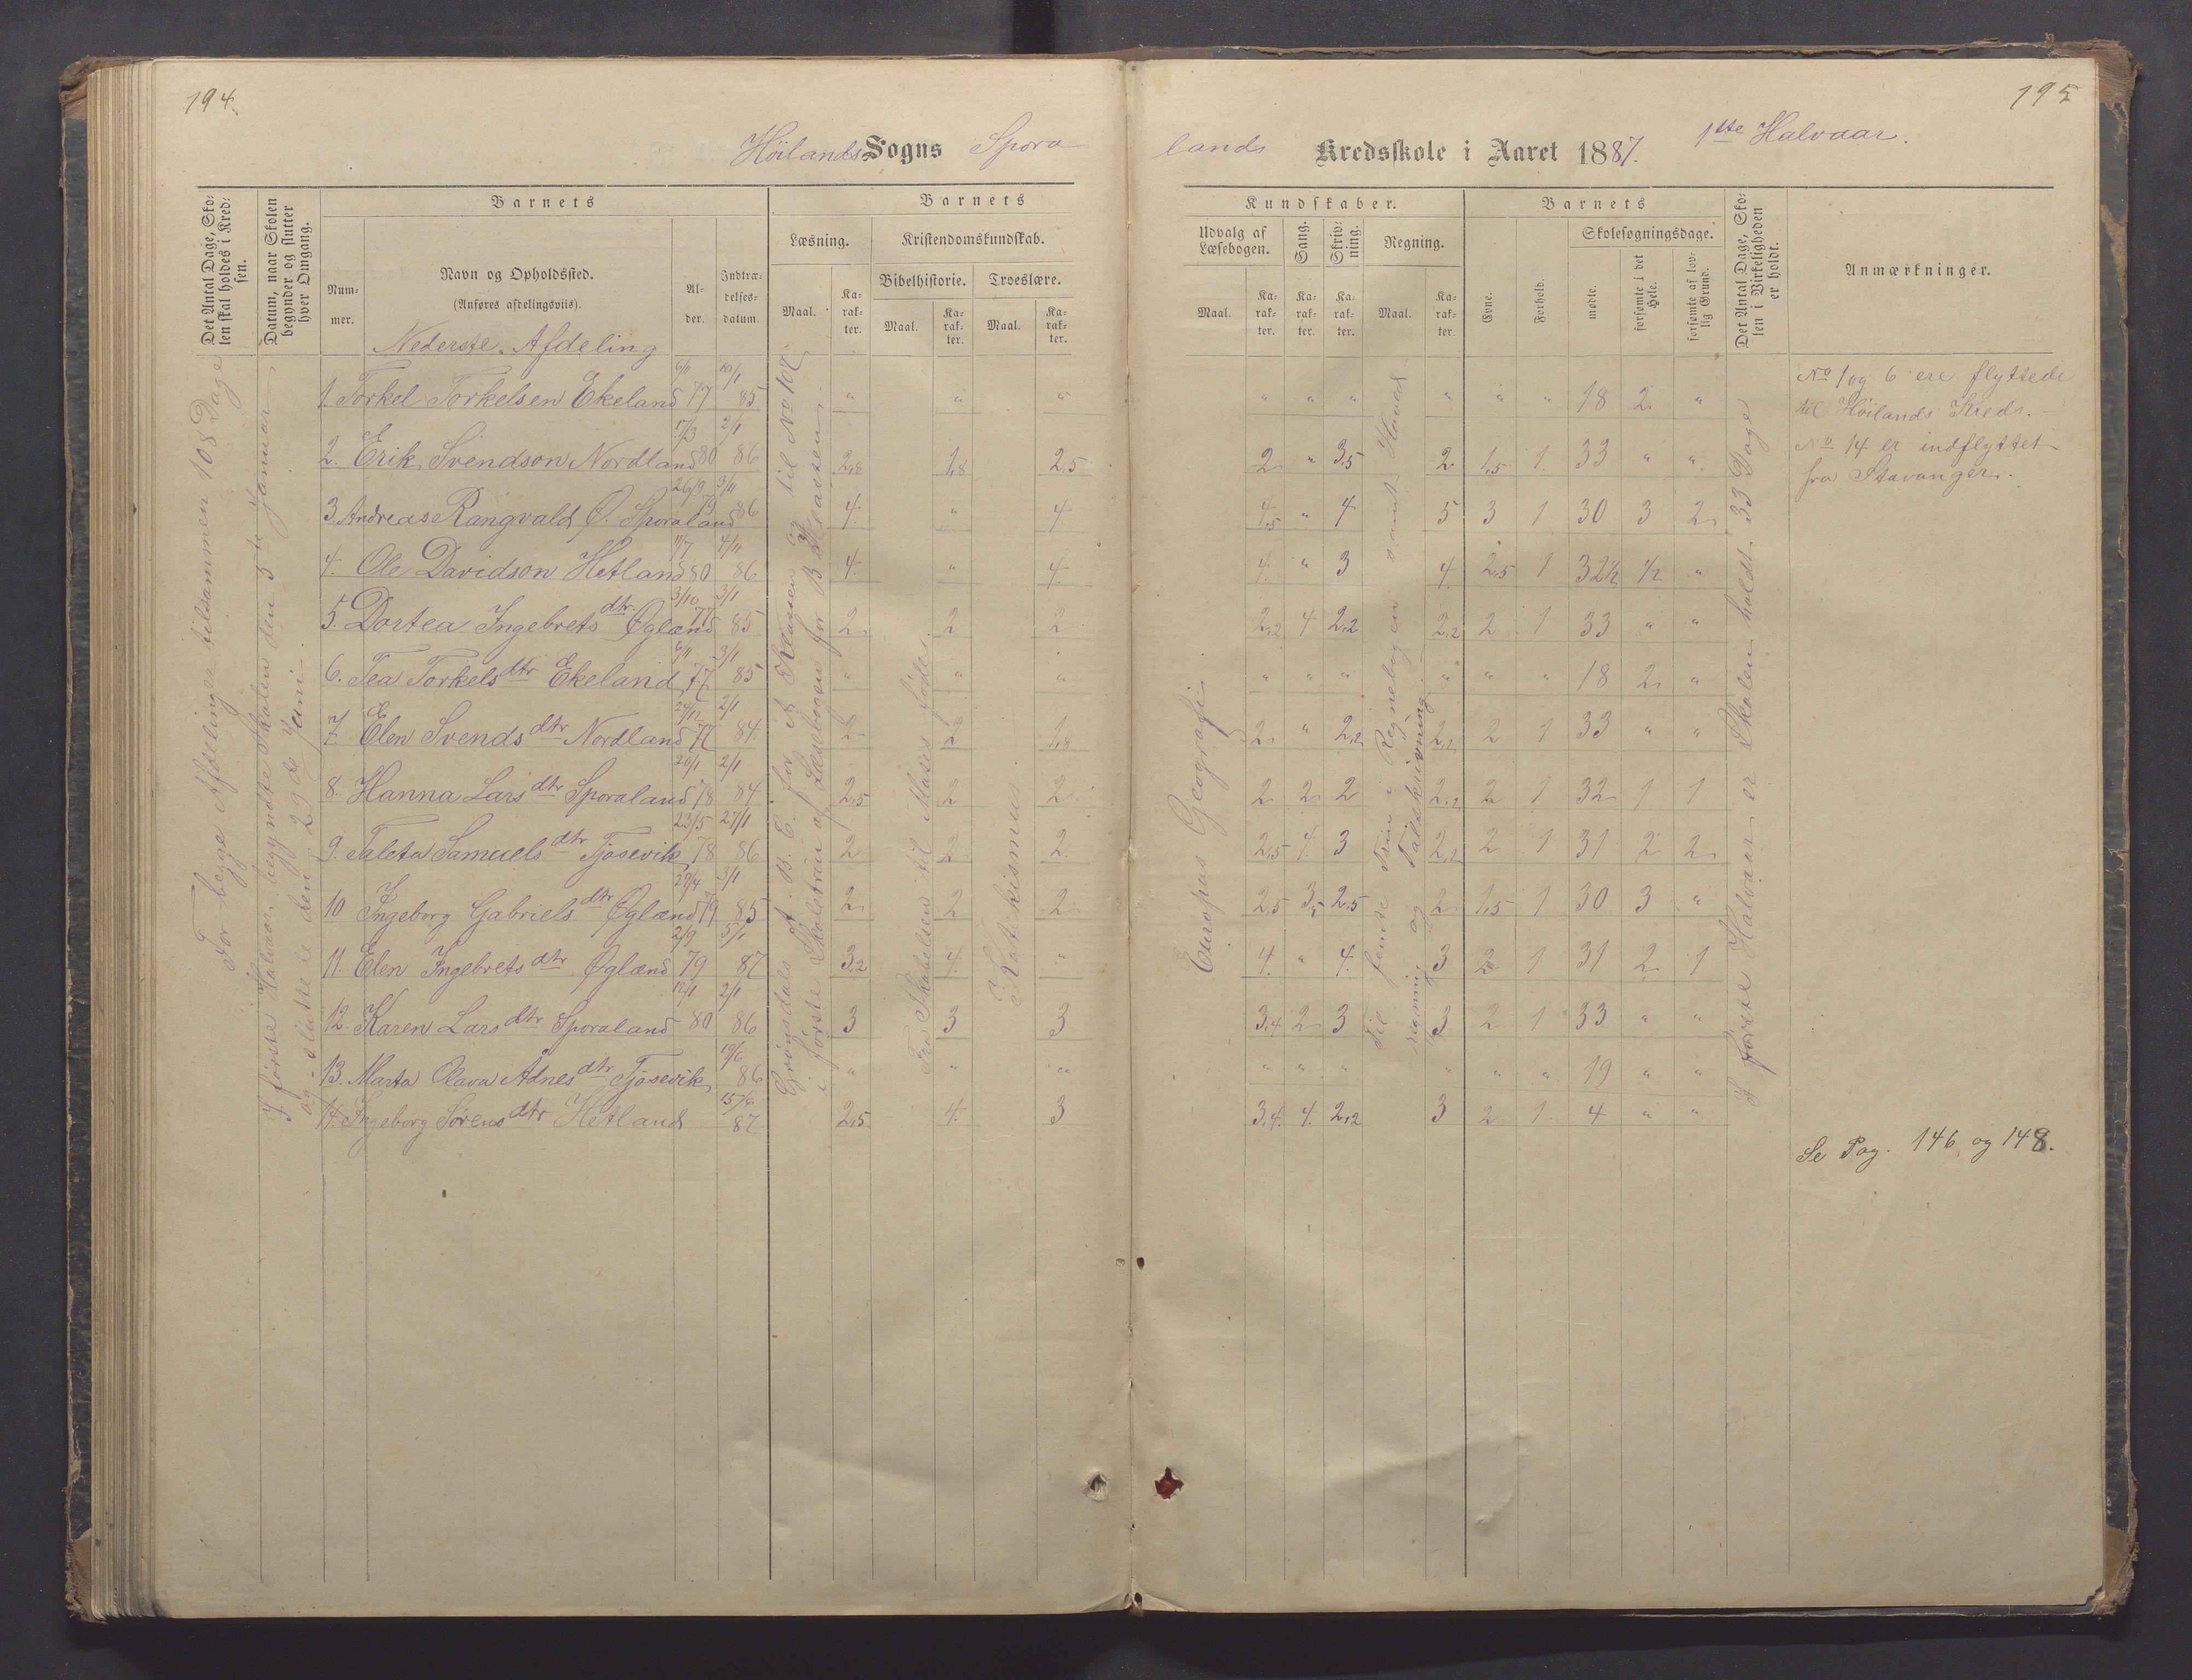 194.
Höilands Sogns Spora
Det Antal Dage, Sko-
len skal holdes i Kred-
sen.
Datum, naar Skolen
begynder og slutter
hver Omgang.
Barnets
Num-
mer.
Navn og Opholdssted.
(Anføres afdelingsviis).
Al-
der.
Indtræ-
delses-
datum.
Barnets
Læsning.
Kristendomskundskab.
Maal.
Ka-
rak-
ter.
Bibelhistorie.
Troeslære.
Maal.
Ka-
rak-
ter.
Maal.
Ka-
rak-
ter.
For begge Afdelinger tilsammen 108 Dage
I første Halvaar begyndte Skolen den 5te Januar
og sluttede den 29de Juni.
Nederste Afdeling
1. Torkel Torkelsen Ekeland 6/11 77 10/1 85 " " "
2. Erik Svendson Nordland 17/3 80 2/1 86 2,8 1,8 2,5
3. Andreas Rangvald Ø. Sporaland 26/9 79 3/11 86 4. " 4
4. Ole Davidson Hetland 11/7 80 4/11 86 4. " 4.
5. Dortea Ingebretsdtr. Øglænd 3/10 77 3/1 85 2. 2 2.
6. Tea Torkelsdtr Ekeland 6/11 77 3/1 85 " " "
7. Elen Svendsdtr Nordland 24/12 77 2/1 84 2 2 1,8
8. Hanna Larsdtr Sporaland 20/1 78 2/1 84 2,5 2 2.
9. Taleta Samuelsdtr Tjosevik 23/5 78 27/1 86 2 2 2.
10 Ingeborg Gabrielsdtr Øglænd 29/4 79 3/1 85 2. 2 2
11. Elen Ingebretsdtr Øglænd 2/9 79 5/1 87 3,2 4. "
12. Karen Larsdtr Sporaland 12/1 80 2/1 86 3 3 3
13. Marta Olava Adnesdtr Tjosevik 19/6 86 " " "
14. Ingeborg Sørensdtr Hetland 15/6 87 2,5 4. 3
Grøndals A. B. C. for A Klassen og til No 102
i første Skoletrin af Læsebogen for B Klassen.
Fra Skabelsen til Moses fødes.
Katekismus
195
lands Kredsskole i Aaret 1887. 1ste Halvaar.
Kundskaber.
Udvalg af
Læsebogen.
Sang.
Skriv-
ning.
Regning.
Maal.
Ka-
rak-
ter.
Ka-
rak-
ter.
Ka-
rak-
ter.
Maal.
Ka-
rak-
ter.
Barnets
Evne.
Forhold.
Skolesøgningsdage.
mødte.
forsømte i det
Hele.
forsømte af lov-
lig Grund.
Det Antal Dage, Sko-
len i Virkeligheden
er holdt.
Anmærkninger.
" " " " " " 18 2 "
2 " 3,5 2 1,5 1 33 " "
4,5 " 4 5 3 1 30 3 2
4. " 3 4. 2,5 1 32½ ½ "
2,2 4 2,2 2,2 2 1 33 " "
" " " " " " 18 2 "
2 " 2,2 2,2 2 1 33 " "
2 2 2 2,2 2 1 32 1 1
2,5 4. 3 2,2 2 1 31 2 2
2,5 3,5 2,5 2. 1,5 1 30 3 "
4. " 4. 3 2 1 31 2 1
3,4 2 3 3 2 1 33 " "
" " " " " " 19 " "
3,4. 4. 2,2 3 2 1 4 " "
Europas Geografi.
Til femte Trin i Regnebogen samt Hoved-
regning og Talskrivning.
I første Halvaar er Skolen holdt 33 Dage
No 1 og 6 ere flyttede
til Höilands Kreds.
No 14 er indflyttet
fra Stavanger.
Se Pag. 146 og 148.